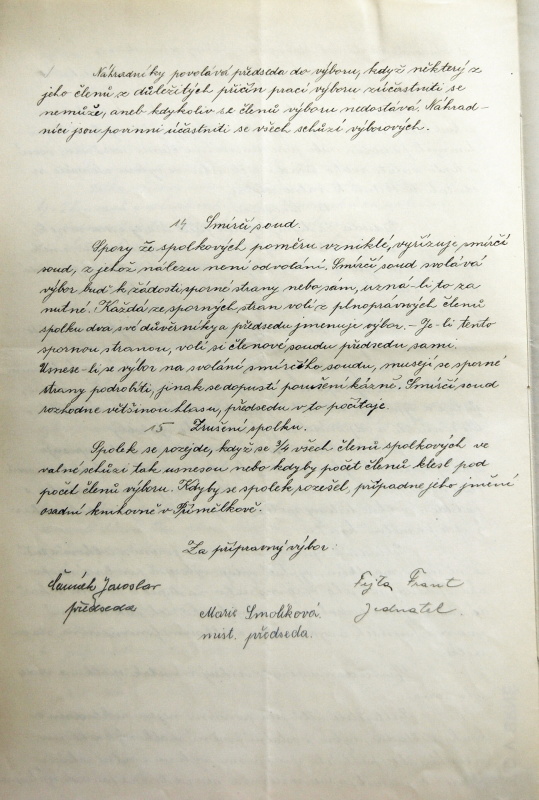 Náhradníky povolává předseda do výboru, když některý z
jeho členů z důležitých příčin prací výboru zúčastniti se
nemůže, aneb kdykoliv se členů výboru nedostává. Náhrad-
níci jsou povinni účastniti se všech schůzí výborových.
14 Smírčí soud.
Spory ze spolkových poměrů vzniklé, vyřizuje smírčí
soud, z jehož nálezu není odvolání. Smírčí soud svolává
výbor buď k žádosti sporné strany nebo sám, uzná-li to za
nutné. Každá ze sporných stran volí z plnoprávných členů
spolku dva své důvěrníky a předsedu jmenuje výbor. - Je-li tento
spornou stranou, volí si členové soudu předsedu sami.
Usnese-li se výbor na svolání smírčího soudu, musejí se sporné
strany podrobiti, jinak se dopustí porušení kázně. Smírčí soud
rozhodne většinou hlasů, předsedu v to počítaje.
15 Zrušení spolku.
Spolek se rozejde, když se 3/4 všech členů spolkových ve
valné schůzi tak usnesou nebo kdyby počet členů klesl pod
počet členů výboru. Kdyby se spolek rozešel, připadne jeho jmění
osadní knihovně v Průmělkově.
Za přípravný výbor:
Jaroslav
předseda
Fejta Frant
jednatel.
Marie Smolíková
míst. předseda.